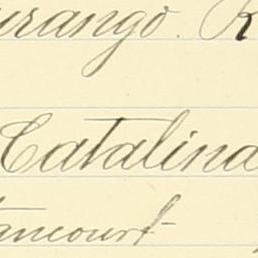 urango. R
Catalina
tancourt